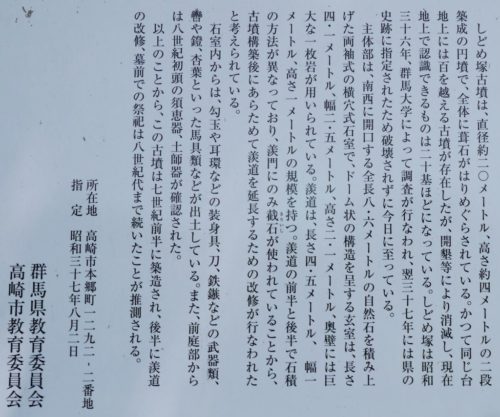 しどめ塚古墳は、直径約二〇メートル、高さ約四メートルの二段
築成の円墳で、全体に葺石がはりめぐらされている。かつて同じ台
地上には百を越える古墳が存在したが、開墾等により消滅し、現在
地上で認識できるものは二十基ほどになっている。しどめ塚は昭和
三十六年、群馬大学によって調査が行なわれ、翌三十七年には県の
史跡に指定されたため破壊されずに今日に至っている。
主体部は、南西に開口する全長八・六メートルの自然石を積み上
げた両袖式の横穴式石室で、ドーム状の構造を呈する玄室は、長さ
四・一メートル、幅二・五メートル、高さ二・一メートル、奥壁には巨
大な一枚岩が用いられている。羨道は、長さ四・五メートル、幅一
メートル、高さ一メートルの規模を持つ。羨道の前半と後半で石積
の方法が異なっており、羨門にのみ截石が使われていることから、
古墳構築後にあらためて羨道を延長するための改修が行なわれた
と考えられている。
石室内からは、勾玉や耳環などの装身具、刀、鉄鏃などの武器類、
轡や鐙、杏葉といった馬具類などが出土している。また、前庭部から
は八世紀初頭の須恵器、土師器が確認された。
以上のことから、この古墳は七世紀前半に築造され、後半に羨道
の改修、墓前での祭祀は八世紀代まで続いたことが推測される。
所在地 高崎市本郷町一二九二・二番地
指定 昭和三十七年八月二日
群馬県教育委員会
高崎市教育委員会